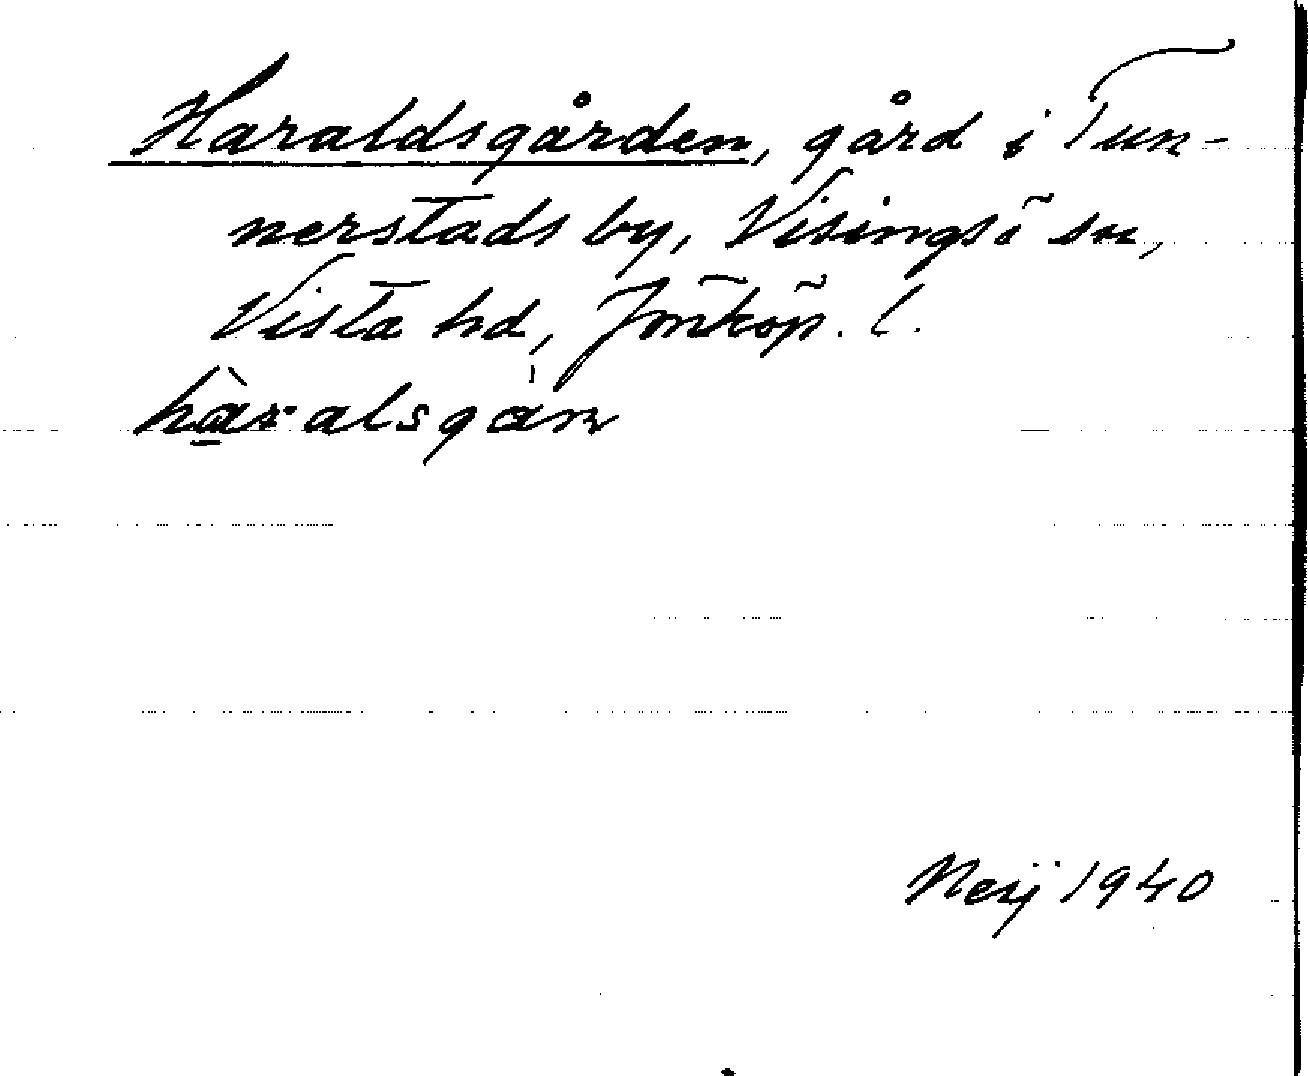 Haraldsgården, gård i Tun-
nerstads by, Visingsö sn,
Vista hd, Jönköp. l.
1940